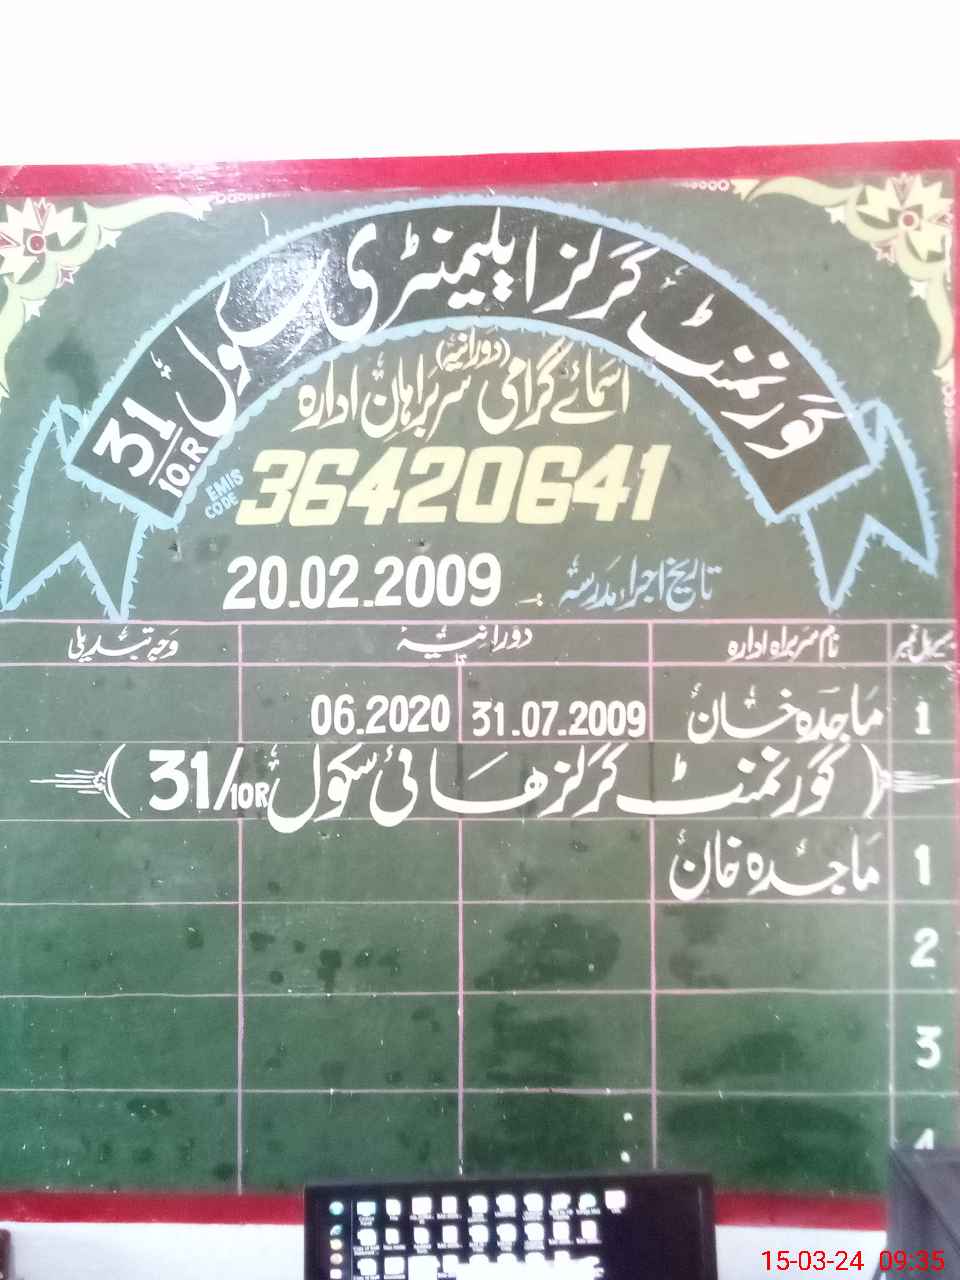 گورنمنٹ گرلز ایلیمنٹری سکول 31/10.R
اسمائے گرامی سربراہان ادارہ (دورانیہ)
EMIS CODE 36420641
تاریخ اجراء مدرسہ 20.02.2009
سیریل نمبر نام سربراہ ادارہ دورانیہ وجہ تبدیلی
تا
1 ماجدہ خان 31.07.2009 06.2020
(گورنمنٹ گرلز ھائی سکول 31/10R)
1 ماجدہ خان
2
3
4
15-03-24 09:35